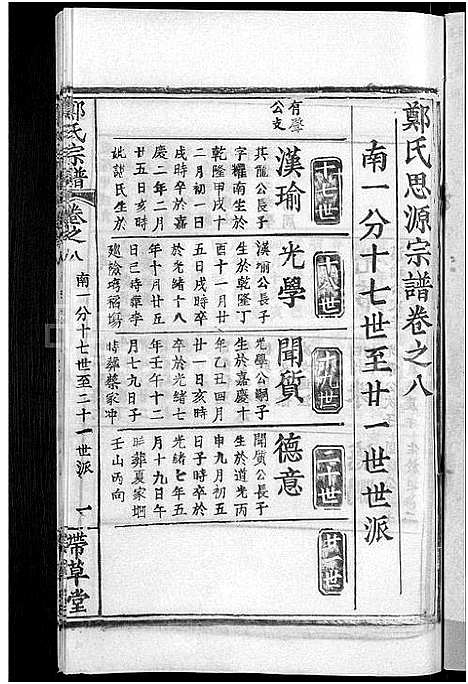 鄭氏思源宗譜卷之八
南一分十七世至廿一世世派
十七世
十八世
十九世
二十世
廿一世
有聲
公支
漢瑜
其龍公長子
字耀南生於
乾隆甲戌十
二月初一日
戌時卒於嘉
慶二年二月
廿五日亥時
姚謝氏生於
光學
漢瑜公長子
生於乾隆丁
酉十一月廿
五日戌時卒
於光緒十八
年十月廿五
日巳時葬李
聞質
光學公嗣子
生於嘉慶十
年乙丑四月
廿一日亥時
卒於光緒七
年壬午十二
月七九日子
時葬蔡家冲
德意
聞質公長子
生於道光丙
申九月初五
日子時卒於
光緒七年五
月十九日午
時葬夏家堋
壬山丙向
鄭氏宗譜
卷之八
南一分十七世至二十一世派
一
帶草堂